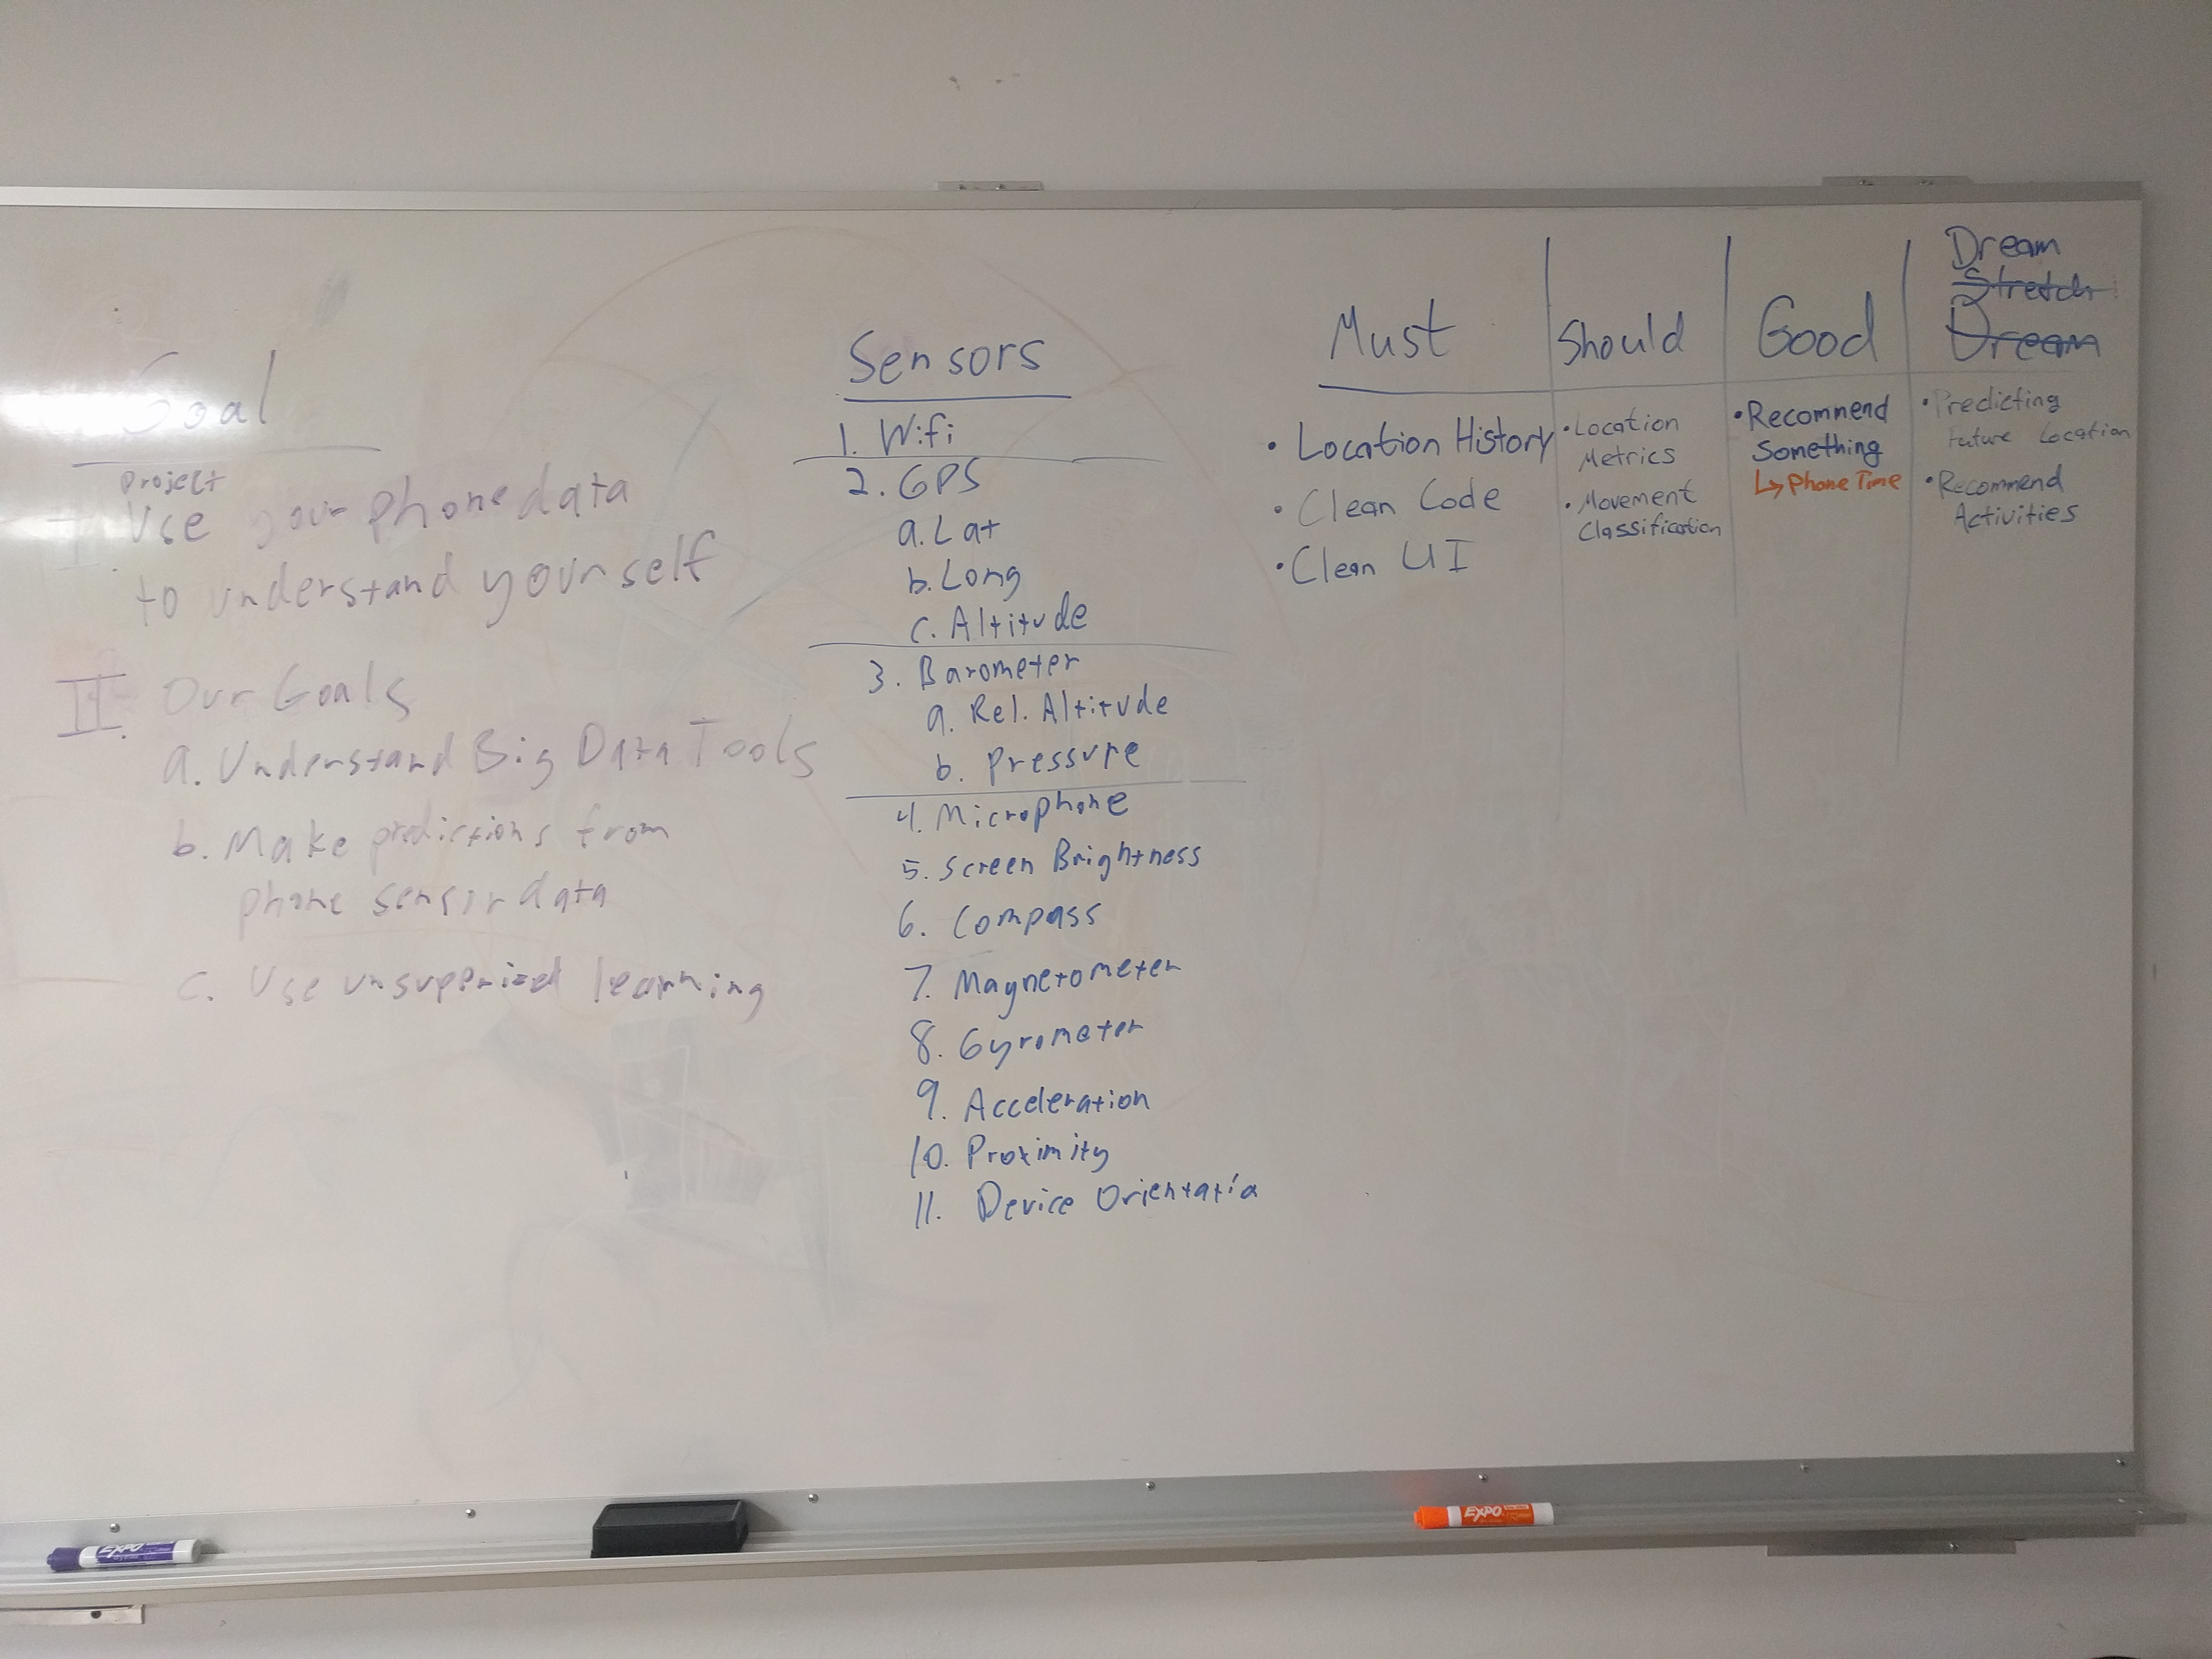 Goal
Project
I. Use your phone data
to understand yourself
II. Our Goals
a. Understand Big Data Tools
b. Make predictions from
phone sensor data
c. Use unsupervised learning
Sensors
1. Wifi
2. GPS
a. Lat
b. Long
c. Altitude
3. Barometer
a. Rel. Altitude
b. Pressure
4. Microphone
5. Screen Brightness
6. Compass
7. Magnetometer
8. Gyrometer
9. Acceleration
10. Proximity
11. Device Orientatio
Must
• Location History
• Clean Code
• Clean UI
Should
• Location
Metrics
• Movement
Classification
Good
• Recommend
Something
↳ Phone Time
Dream
Stretch
Dream
• Predicting
Future Location
• Recommend
Activities
EXPO
EXPO